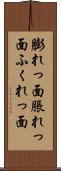 膨れっ面脹れっ
面ふくれっ面